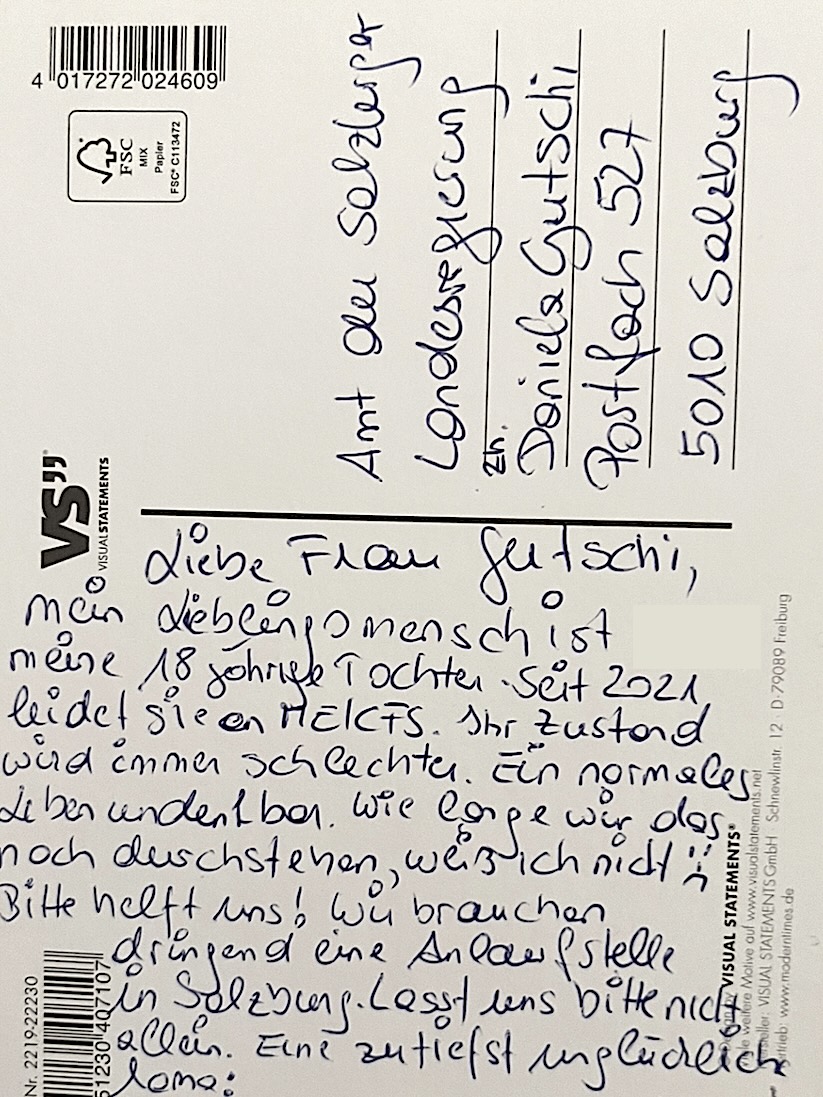 4 017272 024609
FSC
MIX
Papier
FSC® C113472
Amt der Salzburger
Landesregierung
zh.
Daniela Gutschi,
Postfach 527
5010 Salzburg
VS”
VISUAL STATEMENTS
Liebe Frau Gutschi,
mein Lieblingsmensch ist
meine 18 jährige Tochter. Seit 2021
leidet sie an ME/CFS. Ihr Zustand
wird immer schlechter. Ein normales
Leben undenkbar. Wie lange wir das
noch durchstehen, weiß ich nicht :(
Bitte helft uns! Wir brauchen
dringend eine Anlaufstelle
in Salzburg. Lasst uns bitte nicht
allein. Eine zutiefst unglückliche
Mama:
Nr. 2219-22230
51230 407107
VISUAL STATEMENTS®
weitere Motive auf www.visualstatements.net
VISUAL STATEMENTS GmbH · Schnewlinstr. 12 · D-79089 Freiburg
www.moderntimes.de